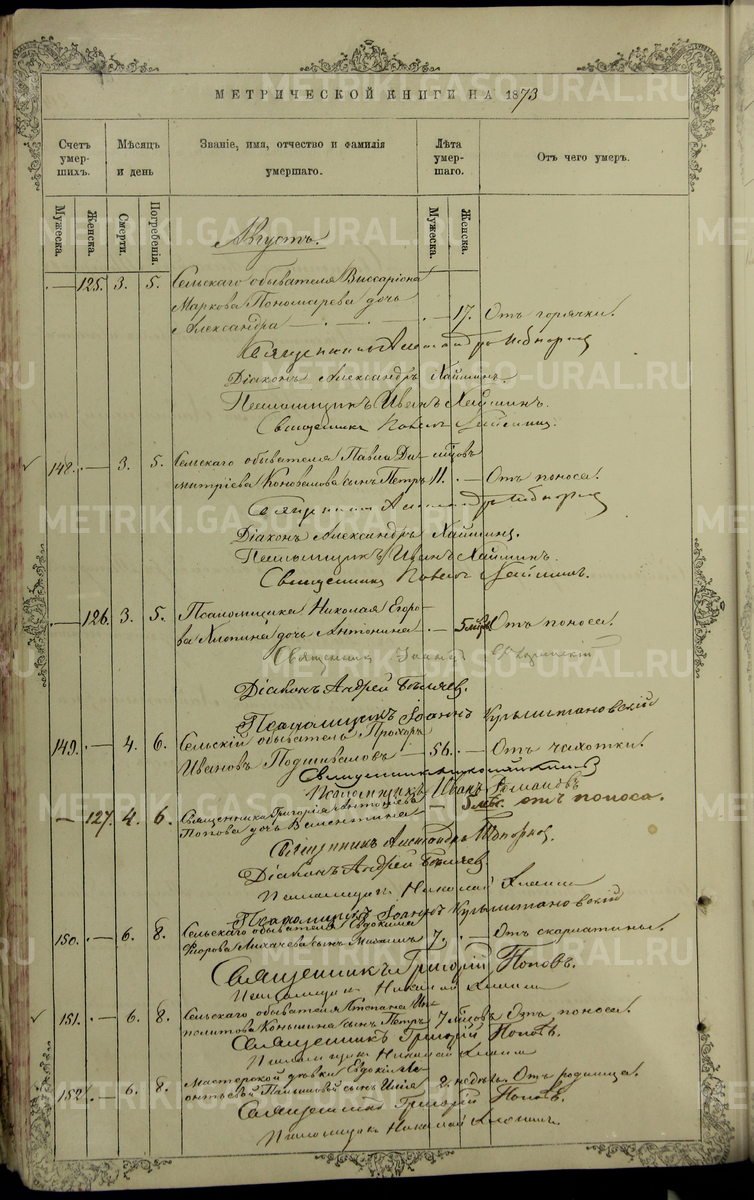 МЕТРИЧЕСКОЙ КНИГИ НА 1873
Счетъ умер- шихъ.
Мѣсяцъ и день
Званіе, имя, отчество и фамилія умершаго.
Лѣта умер- шаго.
Отъ чего умеръ.
Мужеска.
Женска.
Смерти.
Погребенія.
Мужеска.
Женска.
Августъ.
125. 3. 5. Сельскаго обывателя Виссаріона
Маркова Пономарева дочь
Александра 17. Отъ горячки.
Священникъ
Діаконъ Александръ Хаймингъ.
Псаломщикъ Иванъ Хайминъ.
Священникъ Павелъ
148. 3. 5. Сельскаго обывателя Павла Ди-
митріева Коновалова сынъ Петръ 11. Отъ поноса.
Священникъ
Діаконъ Александръ Хайминъ.
Псаломщикъ Иванъ Хайминъ.
Священникъ Павелъ
126. 3. 5. Псаломщика Николая Егоро-
ва Хлопина дочь Антонина 5 Отъ поноса.
Священникъ Іоаннъ
Діаконъ Андрей Бѣляевъ.
Псаломщикъ Іоаннъ Кульметановскій
149. 4. 6. Сельскій обыватель Прохоръ
Ивановъ Подшиваловъ 56. Отъ чахотки.
Священникъ
Псаломщикъ Иванъ Романовъ
127. 4. 6. Священника Григорія Антонiева
Попова дочь Валентина 5 мѣс. отъ поноса.
Священникъ Александръ
Діаконъ Андрей Бѣляевъ
Псаломщикъ Николай Хлопинъ
Псаломщикъ Іоаннъ Кульметановскій
150. 6. 8. Сельскаго обывателя Евдокима
Егорова Лихачева сынъ 7. Отъ скарлатины.
Священникъ Григорій Поповъ.
Псаломщикъ Николай Хлопинъ
151. 6. 8. Сельскаго обывателя Степана Ип-
политова Коньшина сынъ Петръ 7 Отъ поноса.
Священникъ Григорій Поповъ.
Псаломщикъ Николай Хлопинъ
152. 6. 8. Мастерской дѣвки Евдокіи Ле-
онтьевой сынъ Илія 2. недѣли. Отъ родимца.
Священникъ Григорій Поповъ.
Псаломщикъ Николай Хлопинъ.
METRIKI.GASO-URAL.RU